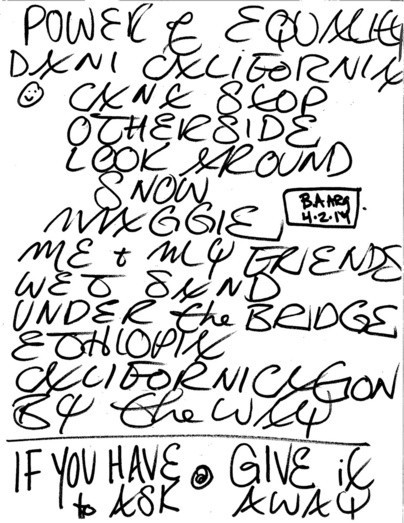 POWER & EQUALITY
DANI CALIFORNIA
CAN'T STOP
OTHERSIDE
LOOK AROUND
SNOW
MAGGIE
BAARS
4.2.14
ME + MY FRIENDS
WET SAND
UNDER the BRIDGE
ETHIOPIA
CALIFORNICATION
BY the WAY
IF YOU HAVE GIVE it
to ASK AWAY